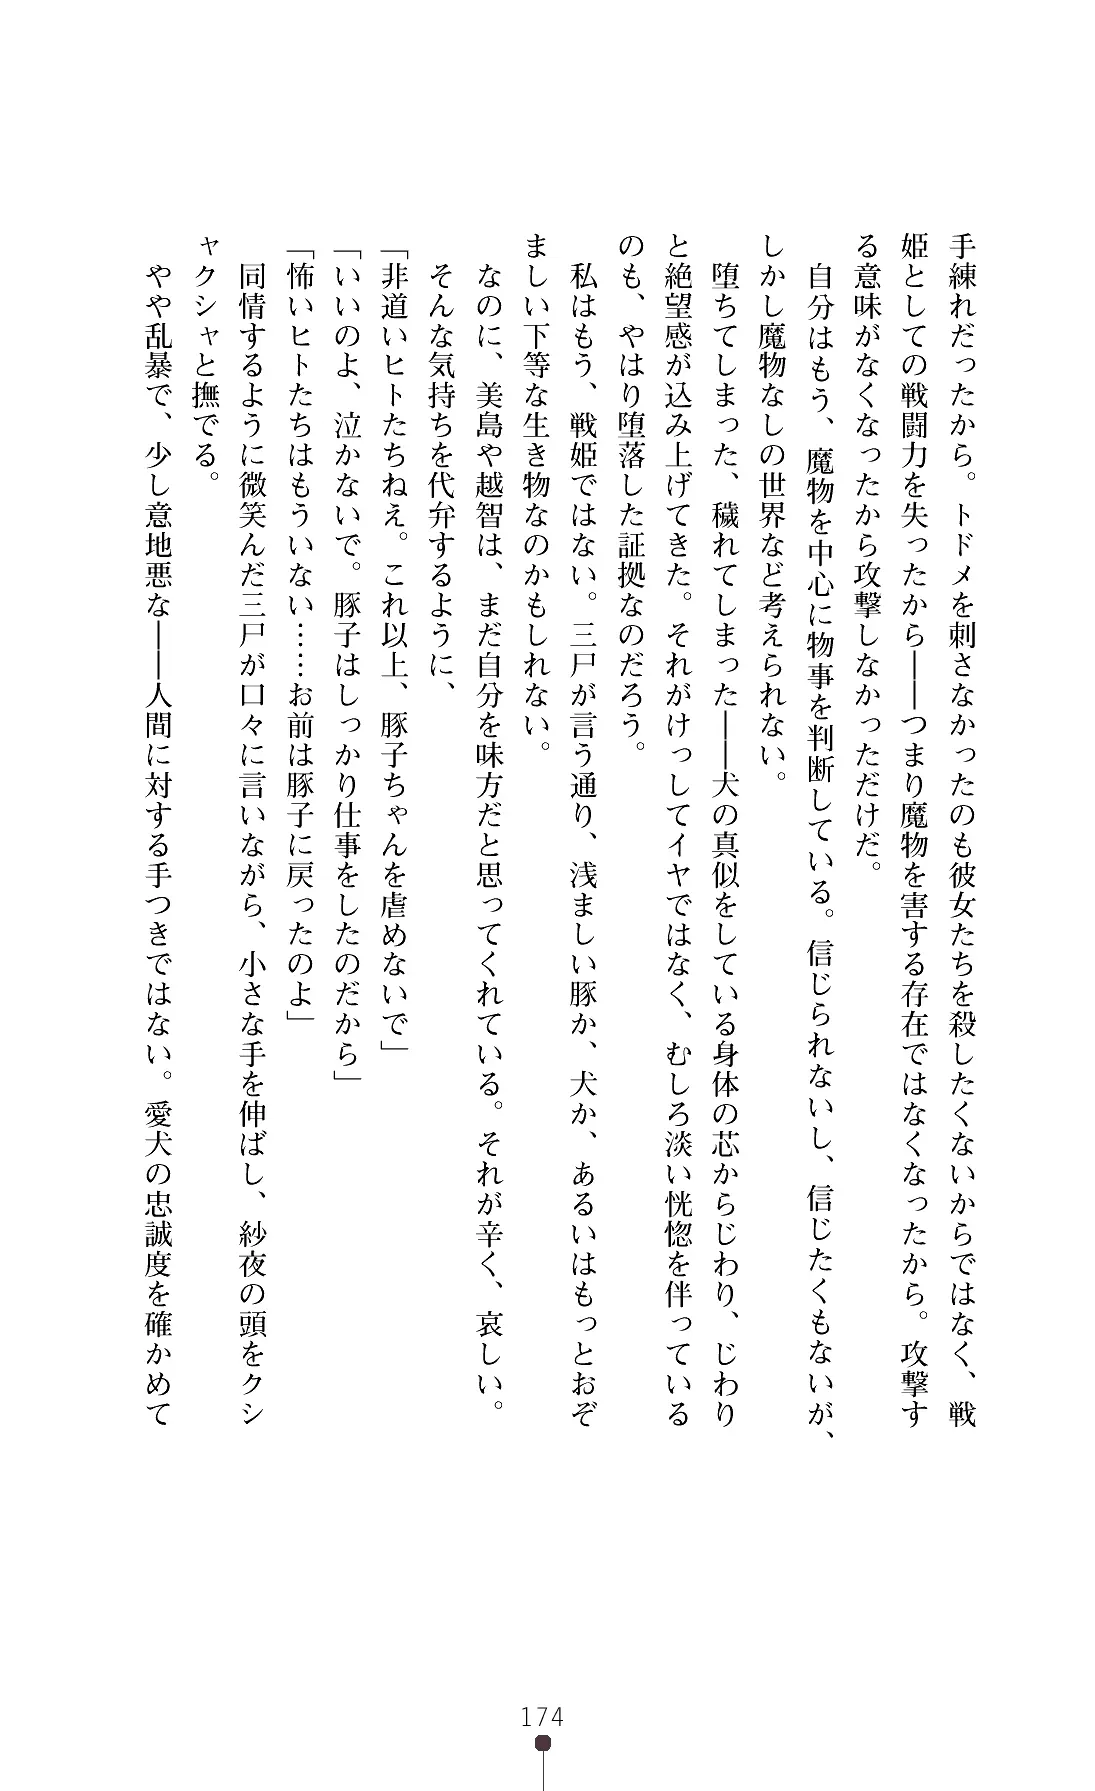 手練れだったから。トドメを刺さなかったのも彼女たちを殺したくないからではなく、戦
姫としての戦闘力を失ったから――つまり魔物を害する存在ではなくなったから。攻撃す
る意味がなくなったから攻撃しなかっただけだ。
　自分はもう、魔物を中心に物事を判断している。信じられないし、信じたくもないが、
しかし魔物なしの世界など考えられない。
　堕ちてしまった、穢れてしまった――犬の真似をしている身体の芯からじわり、じわり
と絶望感が込み上げてきた。それがけっしてイヤではなく、むしろ淡い恍惚を伴っている
のも、やはり堕落した証拠なのだろう。
　私はもう、戦姫ではない。三尸が言う通り、浅ましい豚か、犬か、あるいはもっとおぞ
ましい下等な生き物なのかもしれない。
　なのに、美島や越智は、まだ自分を味方だと思ってくれている。それが辛く、哀しい。
　そんな気持ちを代弁するように、
「非道いヒトたちねえ。これ以上、豚子ちゃんを虐めないで」
「いいのよ、泣かないで。豚子はしっかり仕事をしたのだから」
「怖いヒトたちはもういない……お前は豚子に戻ったのよ」
　同情するように微笑んだ三尸が口々に言いながら、小さな手を伸ばし、紗夜の頭をクシ
ャクシャと撫でる。
　やや乱暴で、少し意地悪な――人間に対する手つきではない。愛犬の忠誠度を確かめて
174